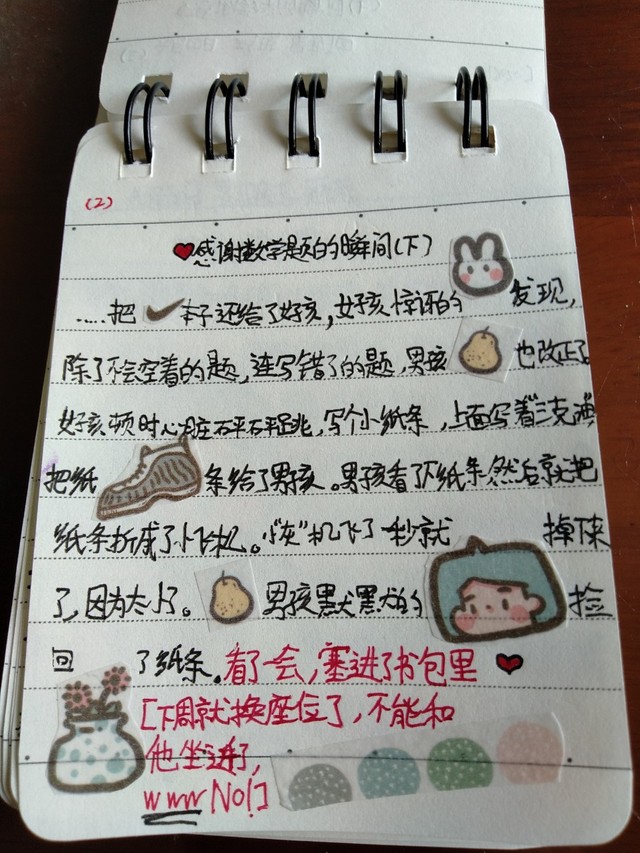 (2)
感谢数学题的瞬间(下)
……把本子还给了女孩,女孩惊讶的发现,
除了不会空着的题,连写错了的题,男孩也改正了
女孩顿时心脏砰砰跳,写个小纸条,上面写着"
把纸条给了男孩。男孩看了下纸条然后就把
纸条折成了小飞机。"灰"机飞了一秒就掉下来
了,因为太小了。男孩默默的捡
回了纸条。看了一会,塞进了书包里
[下周就换座位了,不能和
他坐进了,
www No!]